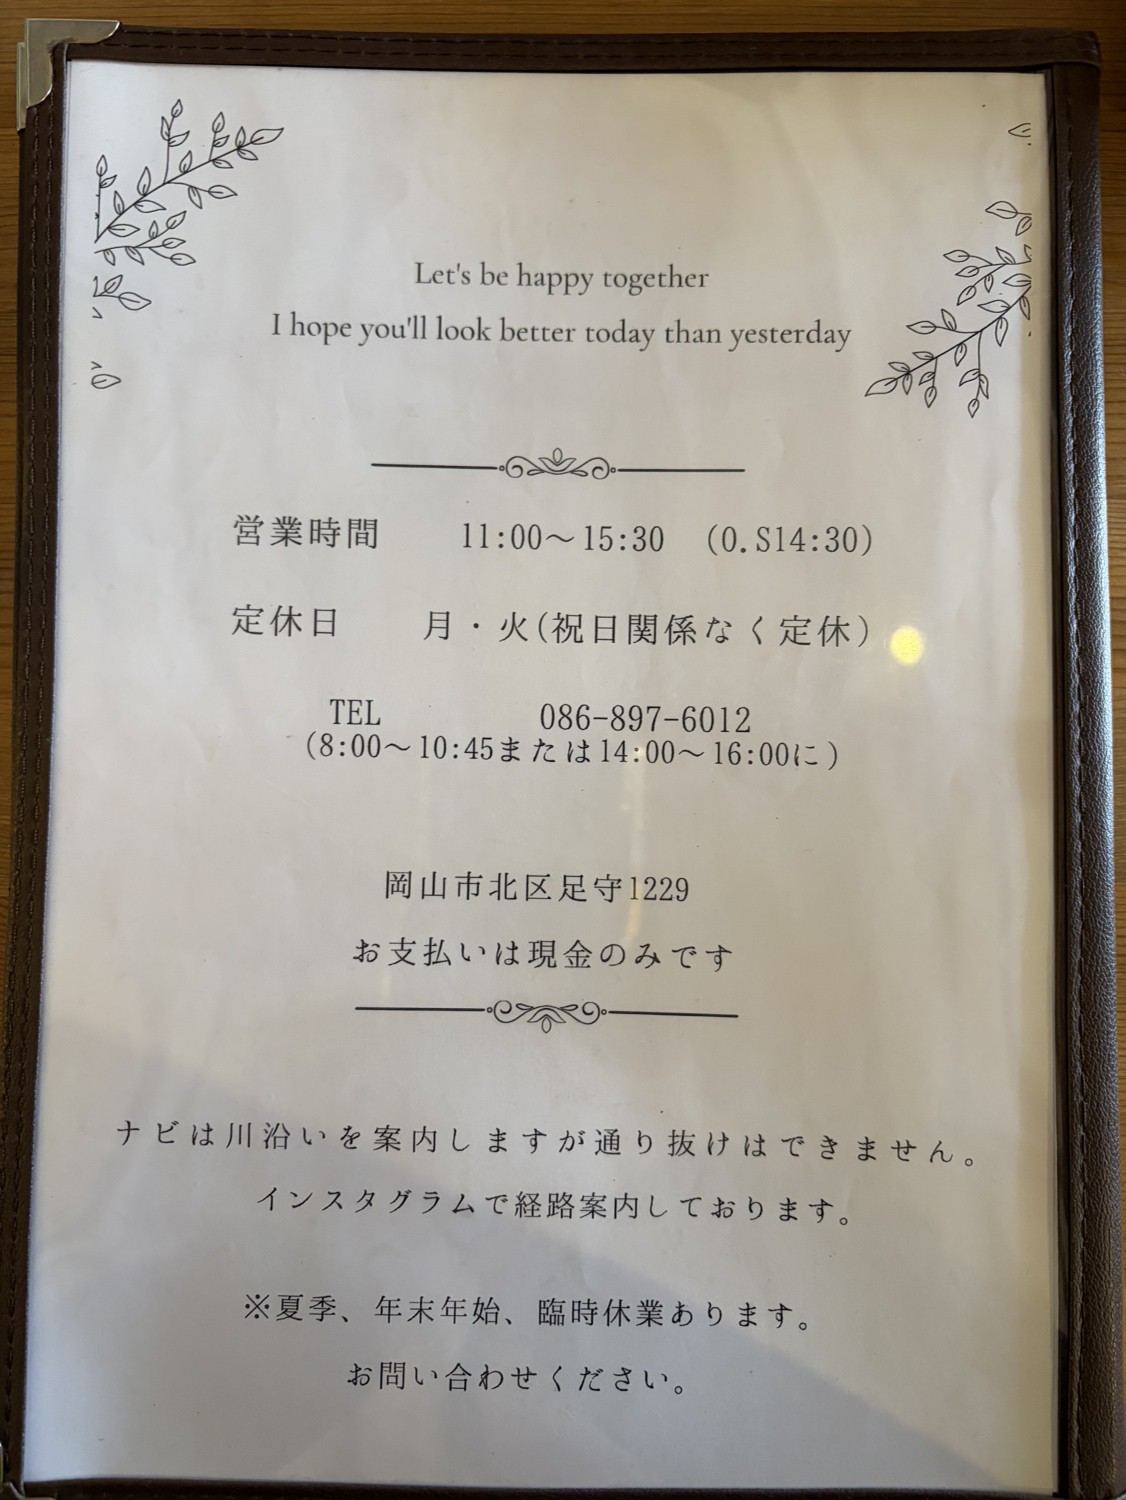 Let's be happy together
I hope you'll look better today than yesterday
営業時間 11:00～15:30 (O.S14:30)
定休日 月・火(祝日関係なく定休)
TEL 086-897-6012
(8:00～10:45または14:00～16:00に)
岡山市北区足守1229
お支払いは現金のみです
ナビは川沿いを案内しますが通り抜けはできません。
インスタグラムで経路案内しております。
※夏季、年末年始、臨時休業あります。
お問い合わせください。